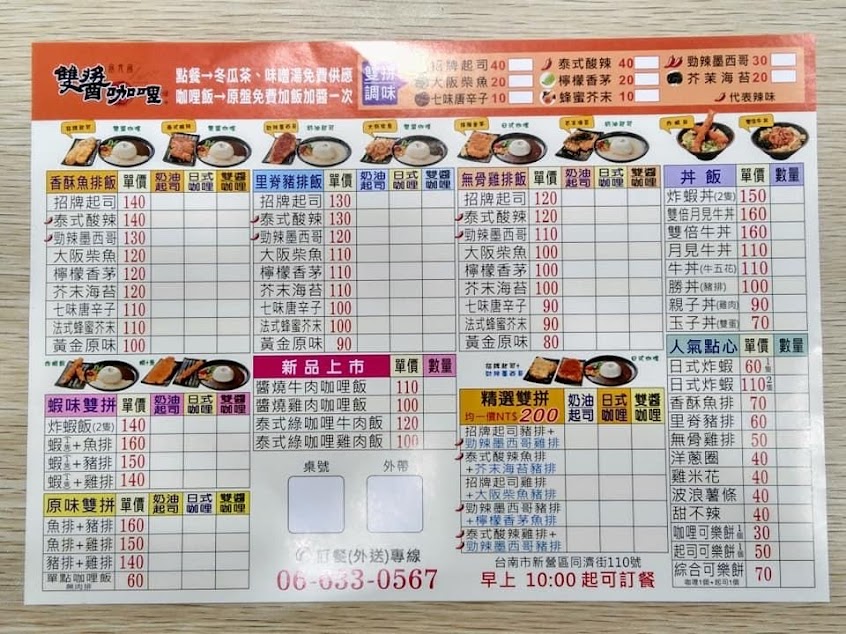 雙醬咖哩
點餐→冬瓜茶、味噌湯免費供應
咖哩飯→原盤免費加飯加醬一次
雙拼調味
招牌起司 40
泰式酸辣 40
勁辣墨西哥 30
大阪柴魚 20
檸檬香茅 20
芥茉海苔 20
七味唐辛子 10
蜂蜜芥末 10
代表辣味
香酥魚排飯 單價 奶油起司 日式咖哩 雙醬咖哩
招牌起司 140
泰式酸辣 140
勁辣墨西哥 130
大阪柴魚 120
檸檬香茅 120
芥末海苔 120
七味唐辛子 110
法式蜂蜜芥末 110
黃金原味 100
里脊豬排飯 單價 奶油起司 日式咖哩 雙醬咖哩
招牌起司 130
泰式酸辣 130
勁辣墨西哥 120
大阪柴魚 110
檸檬香茅 110
芥末海苔 110
七味唐辛子 100
法式蜂蜜芥末 100
黃金原味 90
無骨雞排飯 單價 奶油起司 日式咖哩 雙醬咖哩
招牌起司 120
泰式酸辣 120
勁辣墨西哥 110
大阪柴魚 100
檸檬香茅 100
芥末海苔 100
七味唐辛子 90
法式蜂蜜芥末 90
黃金原味 80
丼飯 單價 數量
炸蝦丼(2隻) 150
雙倍月見牛丼 160
雙倍牛丼 160
月見牛丼 110
牛丼(牛五花) 110
勝丼(豬排) 100
親子丼(雞肉) 90
玉子丼(雙蛋) 70
蝦味雙拼 單價 奶油起司 日式咖哩 雙醬咖哩
炸蝦飯(2隻) 140
蝦(1隻)+魚排 160
蝦(1隻)+豬排 150
蝦(1隻)+雞排 140
原味雙拼 單價 奶油起司 日式咖哩 雙醬咖哩
魚排+豬排 160
魚排+雞排 150
豬排+雞排 140
單點咖哩飯 無肉排 60
新品上市 單價 數量
醬燒牛肉咖哩飯 110
醬燒雞肉咖哩飯 100
泰式綠咖哩牛肉飯 120
泰式綠咖哩雞肉飯 100
桌號 外帶
訂餐(外送)專線
06-633-0567
精選雙拼 均一價NT$200 奶油起司 日式咖哩 雙醬咖哩
招牌起司豬排+
勁辣墨西哥雞排
泰式酸辣魚排
+芥末海苔豬排
招牌起司雞排
+大阪柴魚豬排
勁辣墨西哥豬排
+檸檬香茅魚排
泰式酸辣雞排+
勁辣墨西哥豬排
台南市新營區同濟街110號
早上 10:00 起可訂餐
人氣點心 單價 數量
日式炸蝦 60 1隻
日式炸蝦 110 2隻
香酥魚排 70
里脊豬排 60
無骨雞排 50
洋蔥圈 40
雞米花 40
波浪薯條 40
甜不辣 40
咖哩可樂餅 1個 30
起司可樂餅 1個 50
綜合可樂餅 70
咖哩1個+起司1個